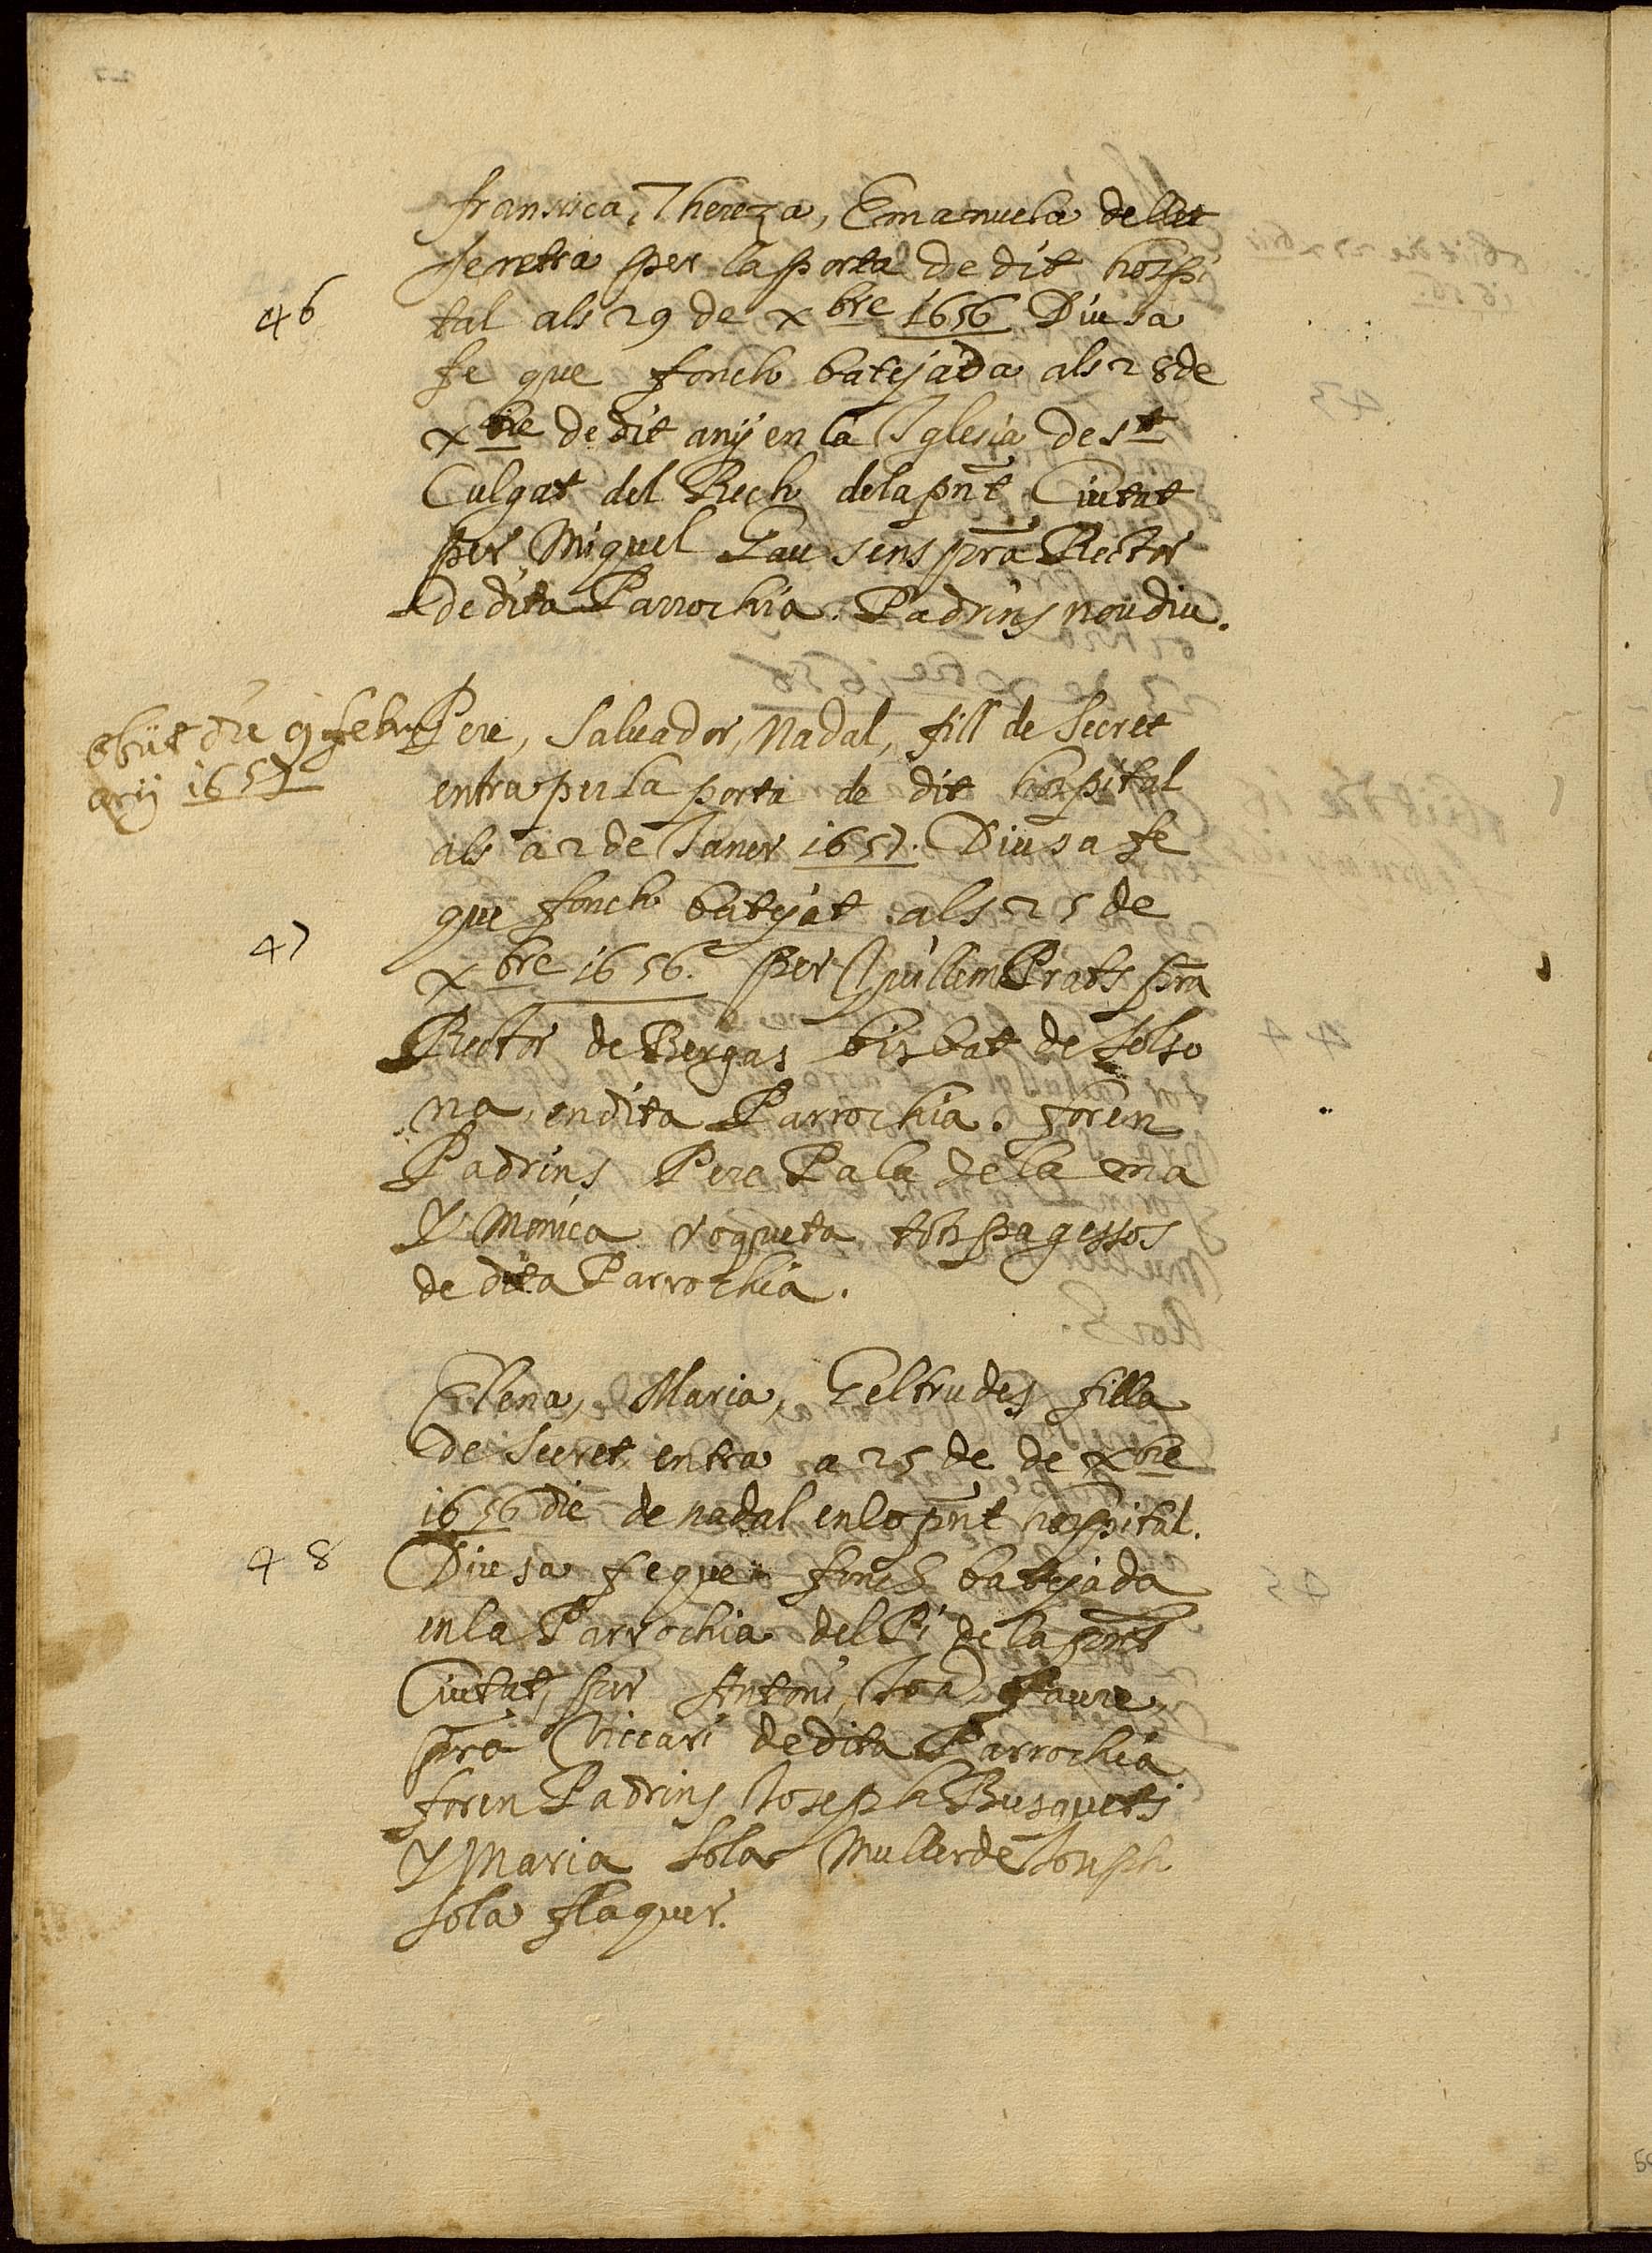 fransisca, Thereza, Emanuela de llet
se nentra per la porta de dit hospi
46
tal als 29 de xbre 1656 Diu sa
fe que fonch batejada als 28 de
xbre de dit any en la Iglesia de st
Culgat del Rech de la pnt Ciutat
per Miquel Gausens pra Rector
de dita Parrochia. Padrins nou diu.
obiit die 9 febru
arij 1657
Pere, Saluador, Nadal, fill de Secret
entra per la porta de dit hospital
als a 2 de Janer 1657. Diu sa fe
que fonch batejat als 25 de
47
xbre 1656. per Guillem Prats pra
Rector de Bergas bisbat de Solso
na, en dita Parrochia. foren
Padrins Pere Pala de la ma
Y Monica roqueta tots pagessos
de dita Parrochia.
Elena, Maria, Geltrudes filla
de Secret entra a 25 de de xbre
1656 die de nadal en lo pnt hospital.
48
Diu sa fe que fonch batejada
en la Parrochia del Pi de la pnt
Ciutat, per Antoni Joa faure
pra Viccari de dita Parrochia
foren Padrins Joseph Busquets
Y Maria Sola Muller de Joseph
Sola flaquer.